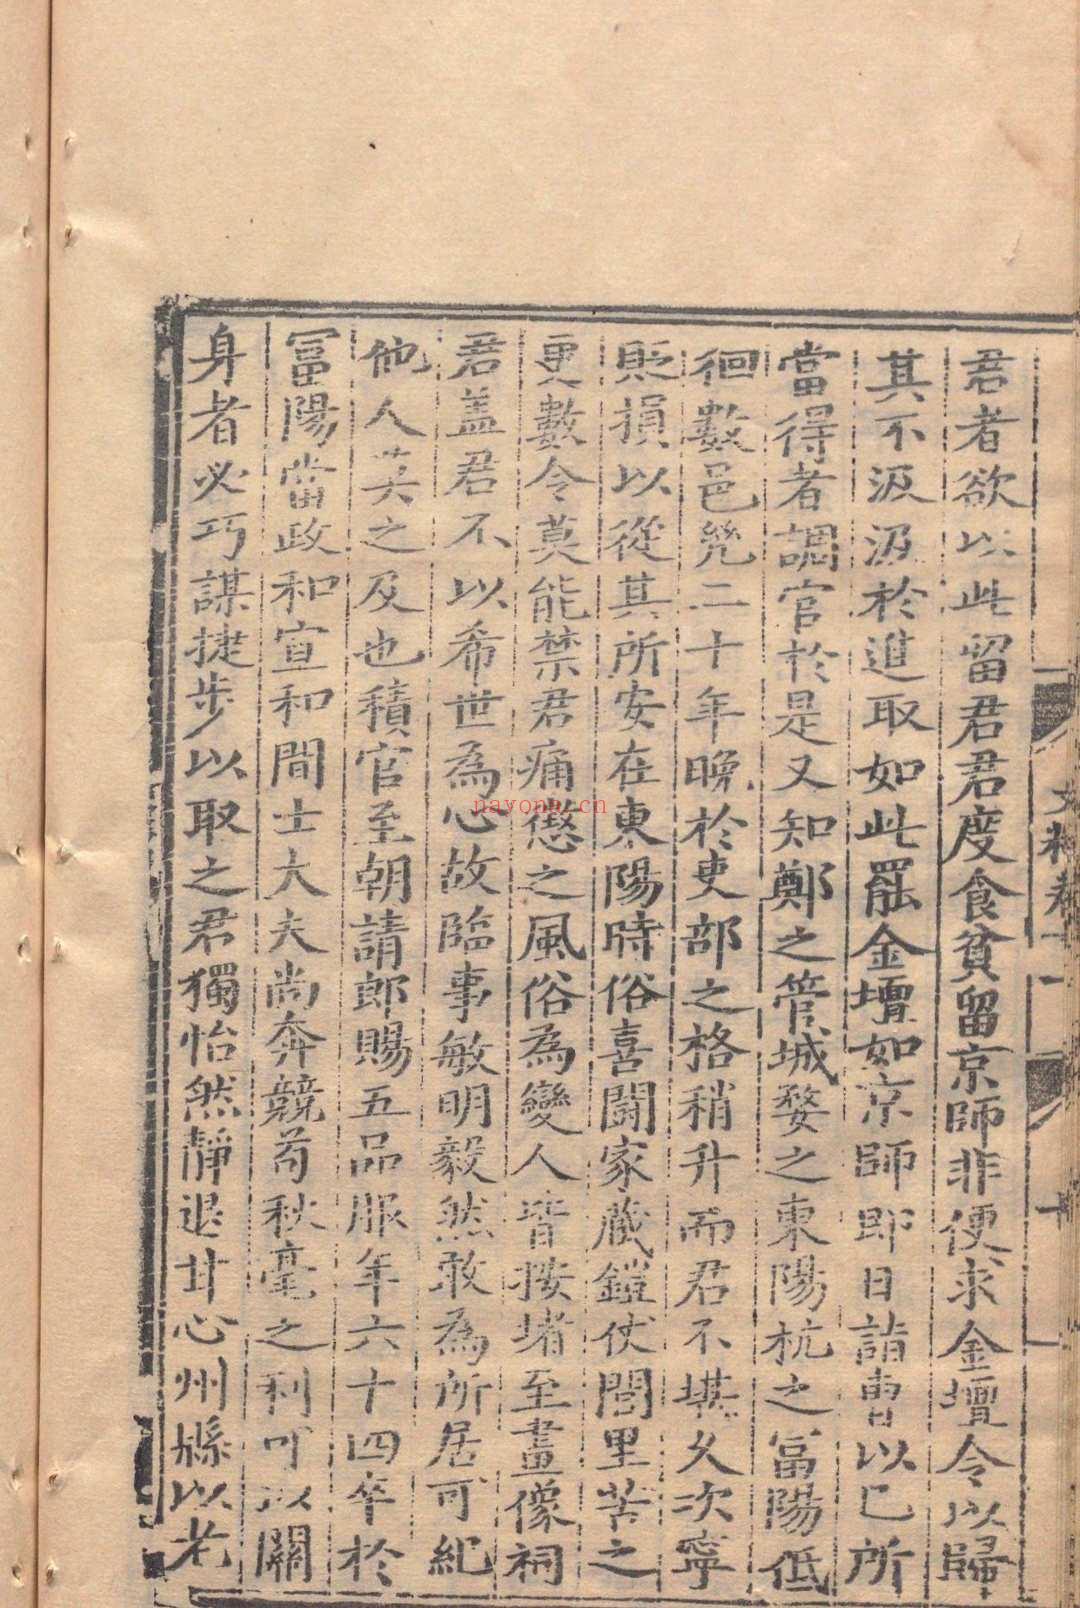 君者欲以此留君君度食貧留京師非便求金壇令以歸
其不汲汲於進取如此罷金壇如京師即日詣曹以已所
當得者調官於是又知鄭之管城婺之東陽杭之富陽低
徊數邑幾二十年晚於吏部之格稍升而君不堪久次寧
貶損以從其所安在東陽時俗喜鬪家藏鎧仗閭里苦之
更數令莫能禁君痛懲之風俗為變人皆按堵至畫像祠
君盖君不以希世為心故臨事敏明毅然敢為所居可紀
他人莫之及也積官至朝請郎賜五品服年六十四卒於
富陽當政和宣和間士大夫尚奔競苟秋毫之利可以關
身者必巧謀捷步以取之君獨怡然靜退甘心州縣以老
nayona.cn